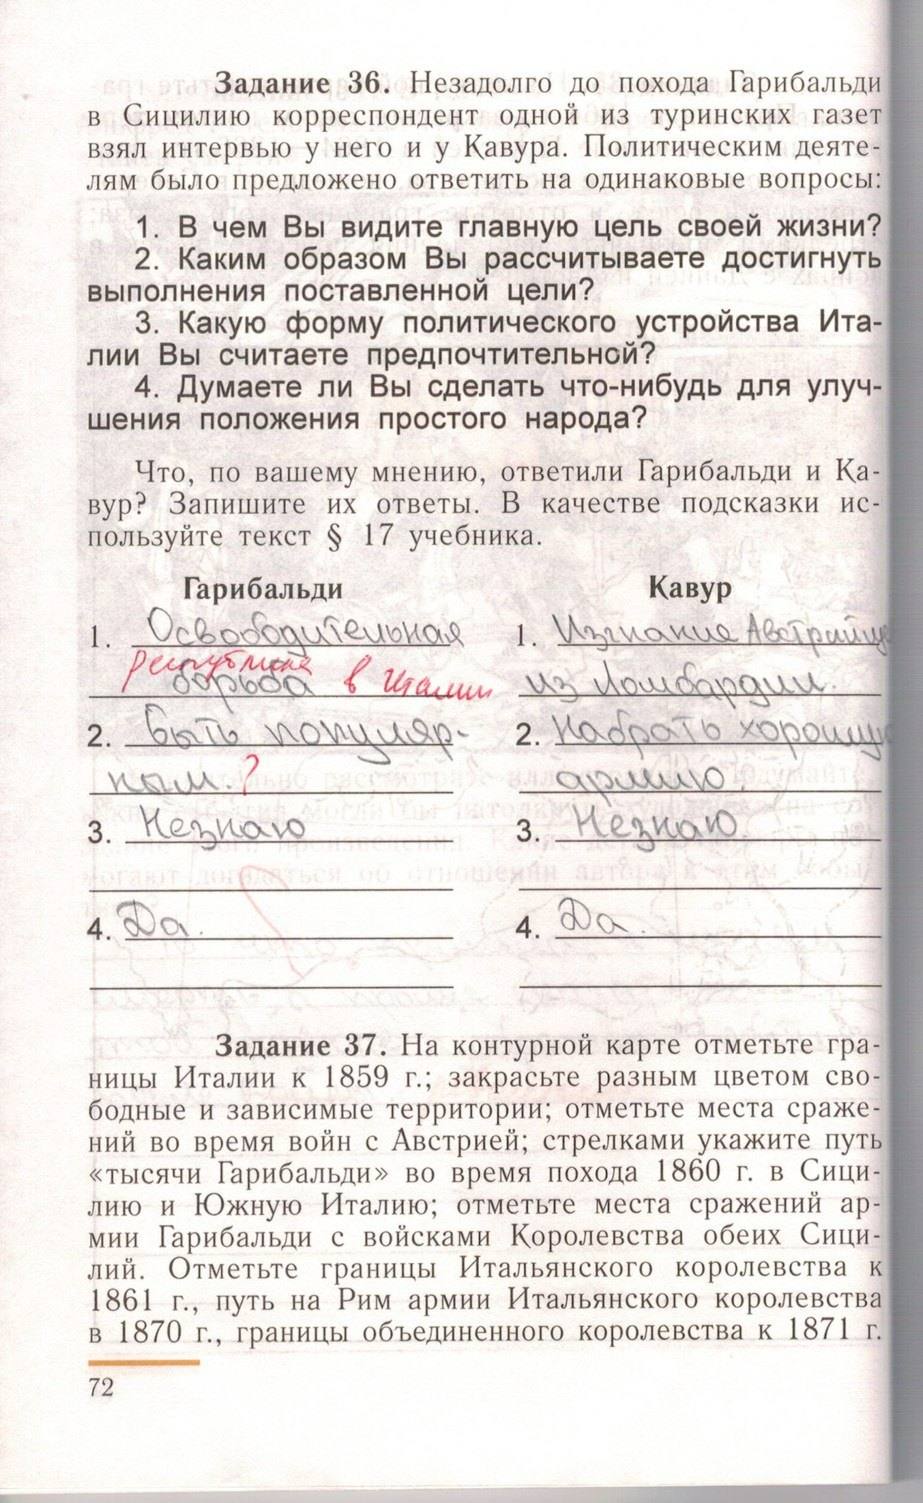 Задание 36. Незадолго до похода Гарибальди
в Сицилию корреспондент одной из туринских газет
взял интервью у него и у Кавура. Политическим деяте-
лям было предложено ответить на одинаковые вопросы:
1. В чем Вы видите главную цель своей жизни?
2. Каким образом Вы рассчитываете достигнуть
выполнения поставленной цели?
3. Какую форму политического устройства Ита-
лии Вы считаете предпочтительной?
4. Думаете ли Вы сделать что-нибудь для улуч-
шения положения простого народа?
Что, по вашему мнению, ответили Гарибальди и Ка-
вур? Запишите их ответы. В качестве подсказки ис-
пользуйте текст § 17 учебника.
Гарибальди
1. Освободительная
республике
борьба в Италии
2. Быть популяр-
ным. ?
3. Незнаю
4. Да.
Кавур
1. Изгнание Австрийце
из Ломбардии.
2. Набрать хорошую
армию.
3. Незнаю.
4. Да.
Задание 37. На контурной карте отметьте гра-
ницы Италии к 1859 г.; закрасьте разным цветом сво-
бодные и зависимые территории; отметьте места сраже-
ний во время войн с Австрией; стрелками укажите путь
«тысячи Гарибальди» во время похода 1860 г. в Сици-
лию и Южную Италию; отметьте места сражений ар-
мии Гарибальди с войсками Королевства обеих Сици-
лий. Отметьте границы Итальянского королевства к
1861 г., путь на Рим армии Итальянского королевства
в 1870 г., границы объединенного королевства к 1871 г.
72